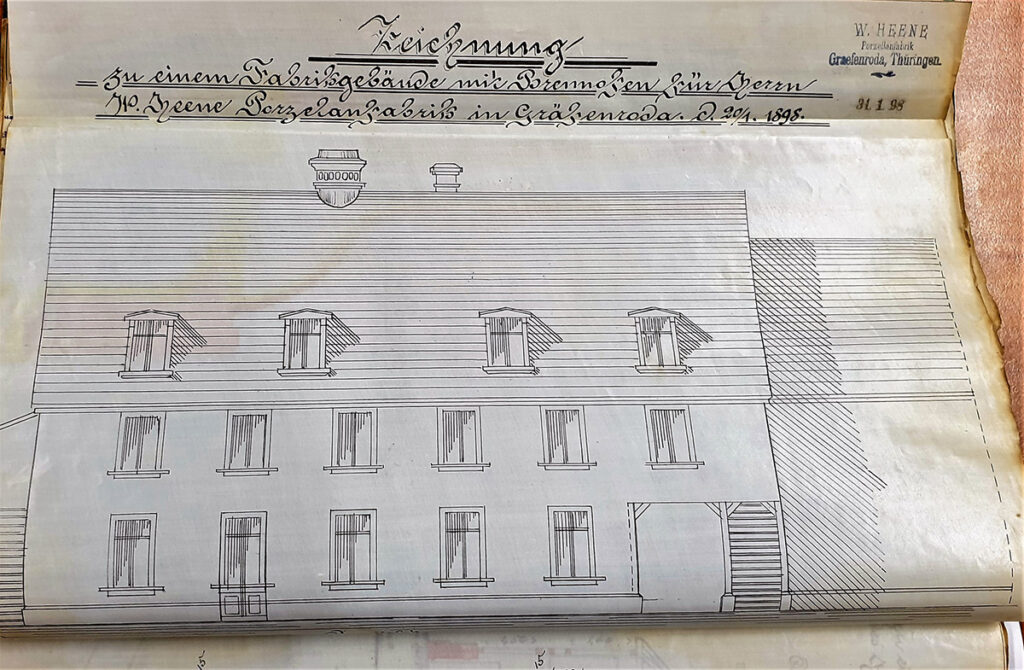 Zeichnung
zu einem Fabrikgebäude mit Brennofen für Herrn
W. Heene Porzelanfabrik in Gräfenroda. d. 20/1. 1898.
W. HEENE
Porzellanfabrik
Graefenroda, Thüringen.
31. 1. 98
5 5